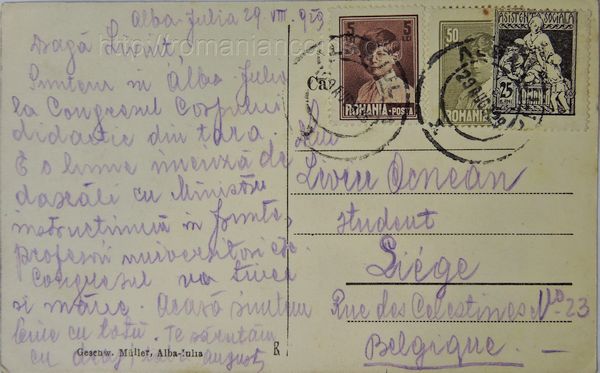 Alba-Julia 29.VIII.929
Dragă Liviu!
Suntem în Alba Julia
la Congresul Corpului
didactic din țara.
E o lume imensă de
dascăli cu Ministru
instrucțiunii în frunte,
profesori universitari etc.
Congresul va ținea
si mâine. Acasă suntem
bine cu totii. Te sărutăm
cu drag,
Geschw. Müller, Alba-Iulia
R
http://romaniancoins.org
5 5
LEI
ROMANIA-POSTA
50
ROMANIA
ASISTENTA SOCIALA
25
Ca
Lui
Liviu Ocnean
student
Liége
Rue des Celestines No 23
Belgique